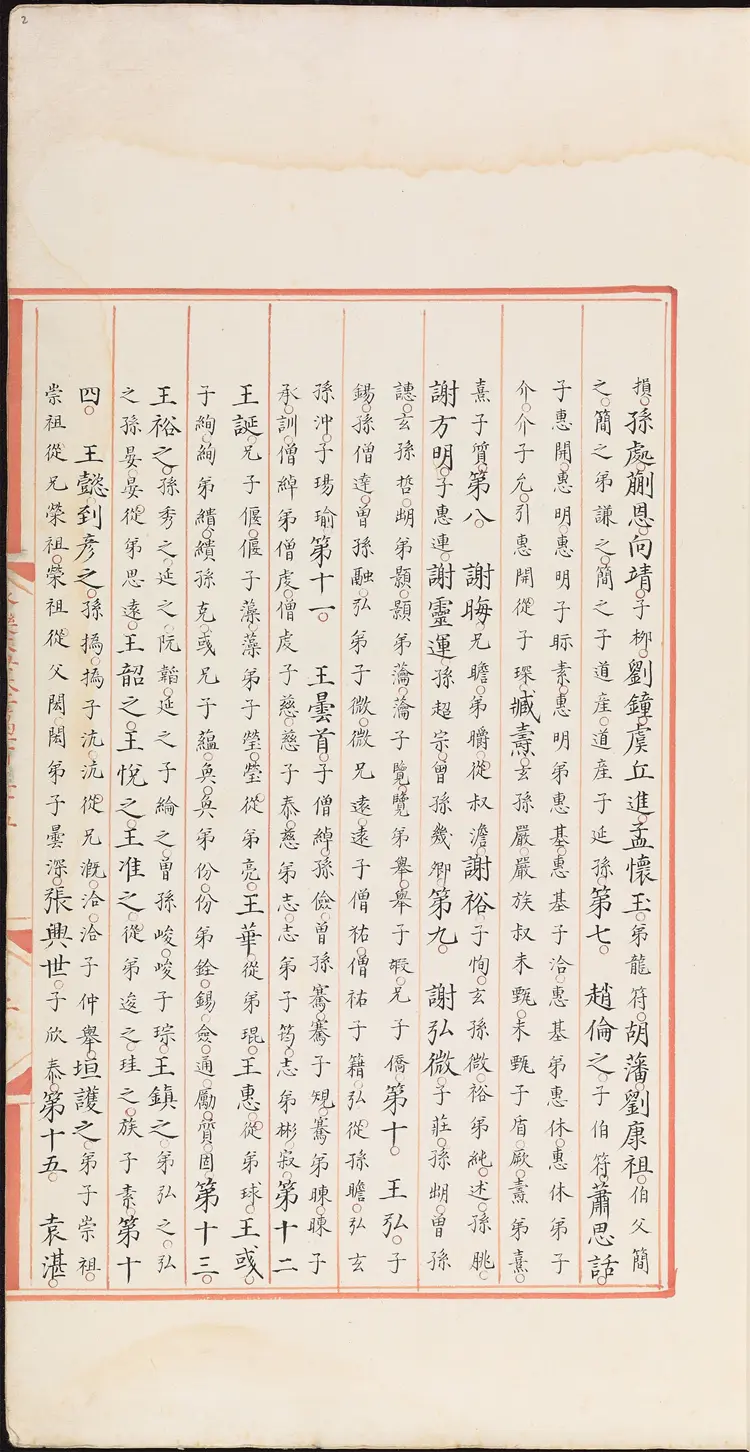 損。孫處。蒯恩。向靖。子柳。劉鐘。虞丘進。孟懷玉。弟龍符。胡藩。劉康祖。伯父簡
之。簡之弟謙之。簡之子道産。道産子延孫。第七。 趙倫之。子伯符。蕭思話。
子惠開。惠明。惠明子眎素。惠明弟惠基。惠基子洽。惠基弟惠休。惠休弟子
介。介子允。引惠開從子琛。臧燾。玄孫嚴。嚴族叔未甄。未甄子盾。厥。燾弟熹。
熹子質。第八。 謝晦。兄瞻。弟㬭。從叔澹。謝裕。子恂。玄孫微。裕弟純。述。孫朓。
謝方明。子惠連。謝靈運。孫超宗。曾孫幾卿。第九。 謝弘微。子莊。孫朏。曾孫
譓。玄孫哲。朏弟顥。顥弟瀹。瀹子覽。覽弟舉。舉子嘏。兄子僑。第十。 王弘。子
錫。孫僧達。曾孫融。弘弟子微。微兄遠。遠子僧祐。僧祐子籍。弘從孫瞻。弘玄
孫沖。子瑒瑜。第十一。 王曇首。子僧綽。孫儉。曾孫騫。騫子規。騫弟暕。暕子
承。訓。僧綽弟僧虔。僧虔子慈。慈子泰。慈弟志。志弟子筠。志弟彬。寂。第十二
王誕。兄子偃。偃子藻。藻弟子瑩。瑩從弟亮。王華。從弟琨。王惠。從弟球。王彧。
子絢。絢弟繢。繢孫克。彧兄子蘊。奐。奐弟份。份弟銓。錫。僉。通。勵。質。固。第十三。
王裕之。孫秀之。延之。阮韜。延之子綸之。曾孫峻。峻子琮。王鎮之。弟弘之。弘
之孫晏。晏從弟思遠。王韶之。王悅之。王准之。從弟逡之。珪之。族子素。第十
四。 王懿。到彥之。孫撝。撝子沆。沆從兄溉。洽。洽子仲舉。垣護之。弟子崇祖。
崇祖從兄榮祖。榮祖從父閎。閎弟子曇深。張興世。子欣泰。第十五。 袁湛。
2